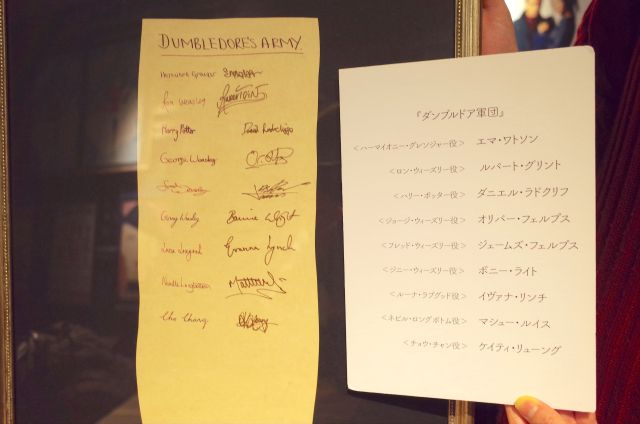 DUMBLEDORE'S ARMY
Hermione Granger
Ron Weasley
Harry Potter
George Weasley
Ginny Weasley Bonnie Wright
Luna Lovegood Evanna Lynch
Neville Longbottom
Cho Chang
『ダンブルドア軍団』
<ハーマイオニー・グレンジャー役> エマ・ワトソン
<ロン・ウィーズリー役> ルパート・グリント
<ハリー・ポッター役> ダニエル・ラドクリフ
<ジョージ・ウィーズリー役> オリバー・フェルプス
<フレッド・ウィーズリー役> ジェームズ・フェルプス
<ジニー・ウィーズリー役> ボニー・ライト
<ルーナ・ラブグッド役> イヴァナ・リンチ
<ネビル・ロングボトム役> マシュー・ルイス
<チョウ・チャン役> ケイティ・リューング